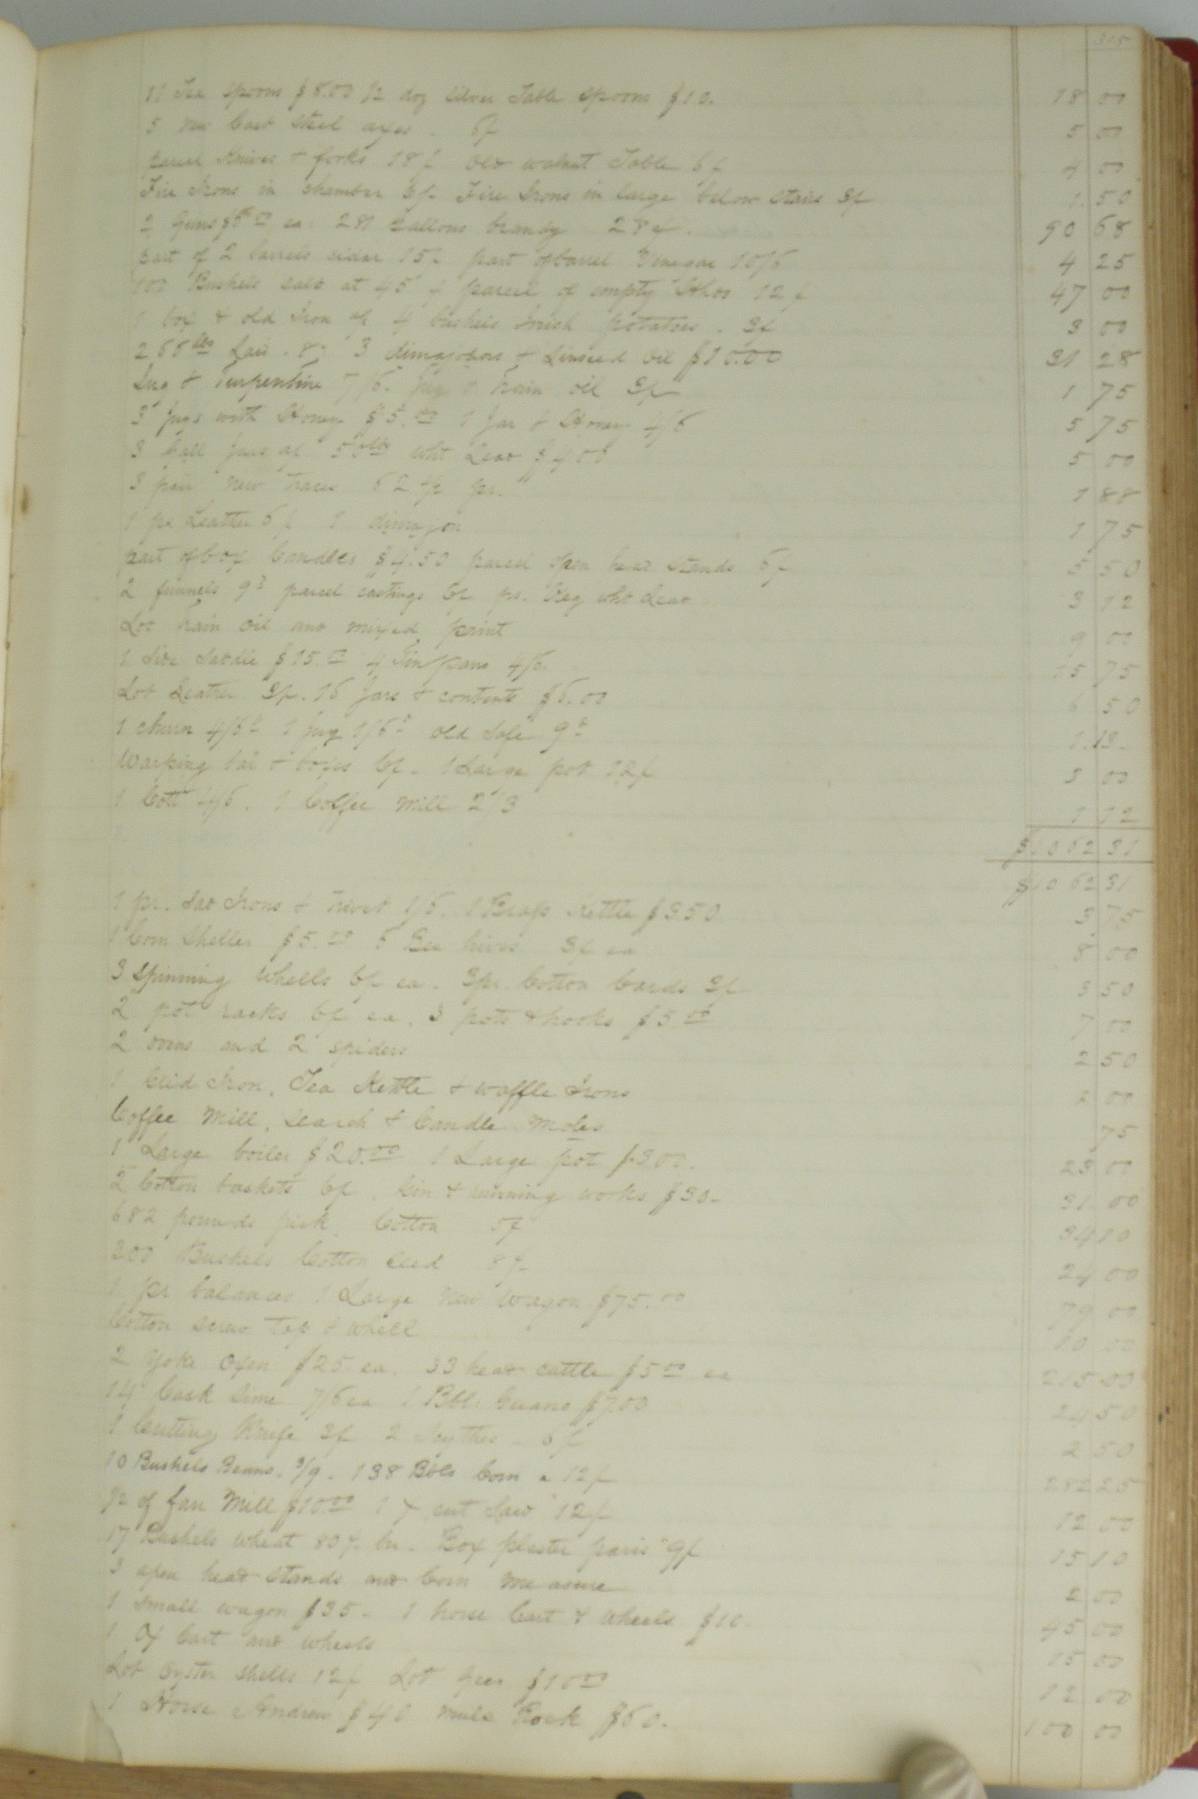 315
11 Tea spoons $8.00 ½ doz silver Table spoons $10. 18 00
5 new Cast steel axes. 6/ 5 00
parcel Knives & forks 18/ Old walnut Table 6/ 4 00
Fire Irons in chamber 6/. Fire Irons in large below stairs 3/ 1.50
2 Guns ea. 281 Gallons brandy 28¢. 90 68
part of 2 barrels cider 15/ part of barrel Vinegar 10/6 4 25
100 Bushels salt at 45 ¢ parcel of empty 12/ 47 00
1 box & old Iron 4 bushels Irish potatoes. 3/ 3 00
266 lbs Lard. 8¢ 3 dimajohns & Linseed oil $10.00 31 28
Jug & Turpentine 7/6. Jug & train oil 3/ 1 75
3 Jugs with Honey $5.00 1 Jar & Honey 4/6 5 75
3 50 lbs wht Lead $4.00 5 00
3 pair new traces 62 ½ pr. 1 88
1 pc Leather 6/ 1 dimajon 1 75
part of box Candles $4.50 parcel open head stands 6/ 5 50
2 funnels 9d parcel castings 6/ pr. Keg wht Lead 3 12
Lot train oil and mixed paint 9 00
1 Side Saddle $15.00 4 Tin pans 4/6 15 75
Lot Leather 3/. 16 Jars & contents $6.00 6 50
1 churn 4/6 1 Jug 1/6 old Safe 9d 1.13
Warping bars & boxes 6/. 1 Large pot 12/ 3 00
1 Cott 4/6. 1 Coffee mill 2/3 1 12
$1062 31
$1062 31
1 pr. Sad Irons & trivet 1/6. 1 Brass Kettle $3.50 3 75
1 Corn Sheller $5.00 6 Bee hives 3/ ea 8 00
3 Spinning Wheells 6/ ea. 3pr. Cotton Cards 3/ 3 50
2 pot racks 6/ ea. 3 pots & hooks $5.00 7 00
2 ovens and 2 spiders 2 50
1 Grid Iron, Tea Kettle & waffle Irons 2 00
Coffee Mill, Search & Candle Moles 75
1 Large boiler $20.00 1 Large pot $3.00. 23 00
2 Cotton baskets 6/. Gin & running works $30. 31 00
682 pounds pick. Cotton 5¢ 34 10
300 Bushels Cotton seed 8¢ 24 00
1 pr balances 1 Large New Wagon $75.00 79 00
Cotton screw top & wheel 10 00
2 Yoke Oxen $25 ea. 33 head cattle $5.00 ea 215 00
14 Cask Lime 7/6 ea 1 Bbl. Guano $7.00 24 50
1 Cutting Knife 3/ 2 Scythes 2 50
10 Bushels Beans. 3/9. 138 Bbls Corn a 12/ 282 25
½ of fan Mill $10.00 1 X cut saw 12/ 12 00
17 Bushels wheat 80¢ bu. Box plaster paris 9/ 15 10
3 open head stands and Corn measure 2 00
1 small wagon $35. 1 horse Cart & Wheels $10. 45 00
1 Ox Cart and wheels 15 00
Lot Oyster shells 12/ Lot Geer $10.00 12 00
1 Horse Andrew $40 Mule $60. 100 00